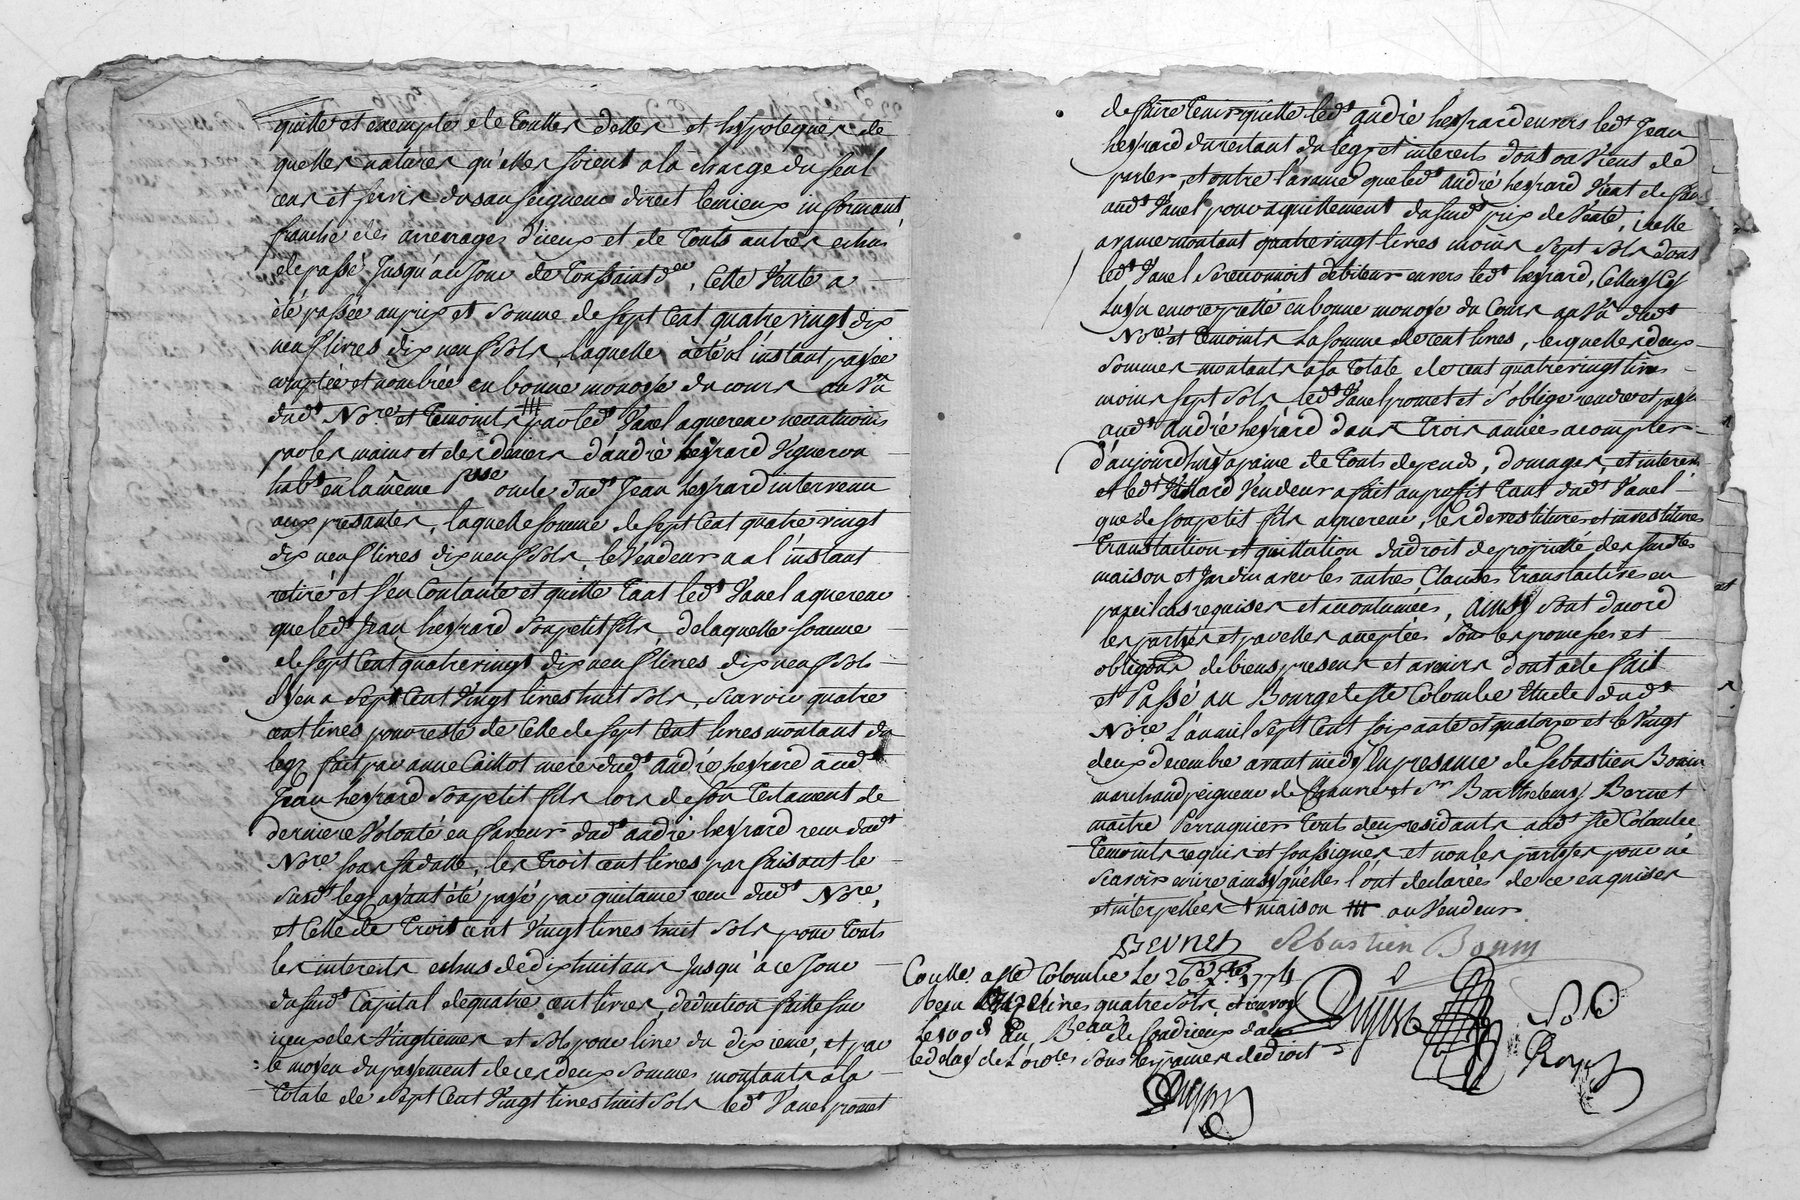 quitte et exempte de touttes dettes et hypoteques de
quelles natures qu'elles soient a la charge du seul
cens et servis du au seigneur direct le mieux informant
franche des arrerages d'iceux et de touts autres echus
de passé jusqu'au jour de Toussaint d.re, Cette Vente a
été passée au prix et somme de sept Cent quatre vingt dix
neuf livres dix neuf sols laquelle a été a l'instant payée
comptée et nombrée en bonne monoye du cours au Vu
dud.t No.re et temoints par led.t Vanel aquereur neantmoins
par les mains et des deniers d'andré heyrard Vigneron
hab.t en la même P.sse oncle dud.t Jean heyrard intervenu
aux presantes, laquelle somme de sept Cent quatre vingt
dix neuf livres dix neuf sols, le Vendeur a a l'instant
retiré et s'en Contante et quitte tant led.t Vanel aquereur
que led.t Jean heyrard son petit fils, de laquelle somme
de sept Cent quatre vingt dix neuf livres dix neuf sols
il y en a sept Cent Vingt livres huit sols, scavoir quatre
cent livres pour reste de Celle de sept Cent livres montant du
legs fait par anne Caillot mere dud.t andré heyrard aud.t
Jean heyrard son petit fils lors de son testament de
derniere Volonté en faveur dud.t andré heyrard recu dud.t
No.re sous sa datte, les trois cent livres parfaisant le
susd.t legs ayant été payé par quitance recu dud.t No.re,
et Celle de trois cent Vingt livres huit sols pour touts
les interests echus de dix huit ans jusqu'a ce jour
du surd.t Capital de quatre cent livres, deduction faitte sur
iceux des Vingtiemes et sols pour livre du dixieme, et par
le moyen du payement de ces deux sommes montants a la
totale de sept Cent Vingt livres huit sols led.t Vanel promet
de faire tenir quitte led.t andré heyrard envers led.t Jean
heyrard du restant du legs et interests dont on Vient de
parler, et outre l'avance que led.t andré heyrard Vient de faire
aud.t Vanel pour aquittement du surd.t prix de Vente, icelle
avance montant quatre vingt livres moins sept sols dont
led.t Vanel se reconnoit debiteur envers led.t heyrard, Celluy Cy
luy a encore pretté en bonne monoye du Cours au Vu dud.t
No.re et temoints la somme de cent livres, lesquelles deux
sommes montants a la totale de cent quatre vingt livres
moins sept sols led.t Vanel promet et s'oblige rendre et payer
aud.t andré heyrard dans trois années a compter
d'aujourd'huy a paine de touts depends, domages, et interests
et led.t Vendeur a fait au profit tant dud.t Vanel
que de son petit fils aquereur, les devestitures et investitures
translaction et quittation du droit de propriété des susd.tes
maison et jardin avec les autres Clauses translactives en
pareil cas requises et accoutumées, ainsy sont d'acord
les parties et par elles acceptées sous les promesses et
oblig.ons de biens presens et avenirs dont acte fait
et Passé au Bourg de S.te Colombe Etude dud.t
No.re L'an mil sept Cent soixante et quatorze et le Vingt
deux decembre avant midy En presance de Sebastien Bonin
marchand peigneur de Chanvre et S.r Barthelemy Bernet
maitre Perruquier touts deux residants aud.t S.te Colombe
temoints requis et soussignes et non les parties pour ne
scavoir ecrire ainsy qu'elles l'ont declarées de ce enquises
et interpellees maison au Vendeur
BERNET Sebastien Bonin
Conllé. a S.te Colombe le 26e x.bre 1774
Recu livres quatre sols, et renvoyé
au B.eau de Condrieux dans
le delay de l'ord.ce sous les paines de droit